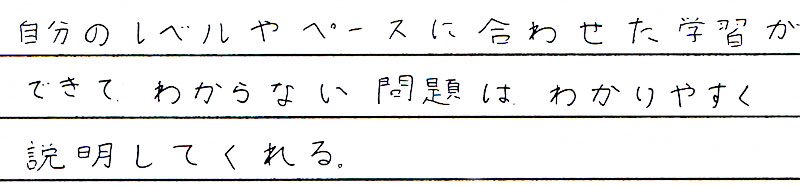 自分のレベルやペースに合わせた学習が
できて、わからない問題は、わかりやすく
説明してくれる。